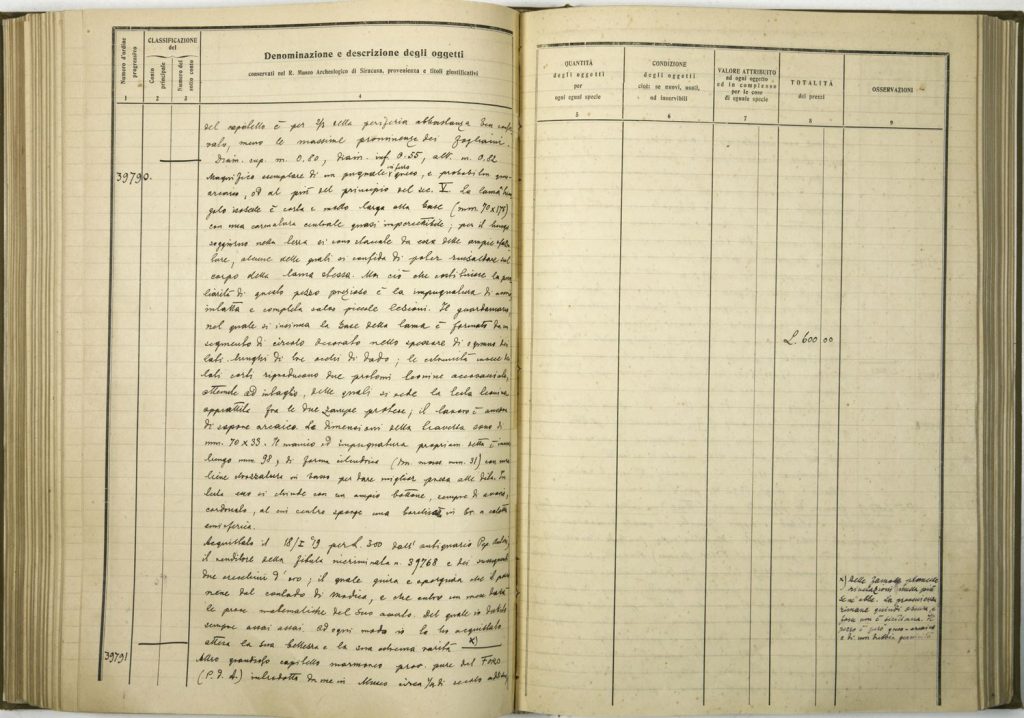 Numero d'ordine progressivo
CLASSIFICAZIONE
del
Conto principale
Numero del sotto conto
Denominazione e descrizione degli oggetti
conservati nel R. Museo Archeologico di Siracusa, provenienza e titoli giustificativi
1 2 3 4
del è per 2/3 della periferia abbastanza ben
meno le massime prominenze dei fogliami.
Diam. sup. m. 0.80, diam. inf. 0.55, alt. m. 0.82
39790.
Magnifico esemplare di un pugnale in ferro greco, e probabilm.
arcaico, od al più del principio del sec. V. La lama
isoscele è corta e molto larga alla base (mm. 70 x 178)
con una centrale quasi impercettibile; per il lungo
soggiorno nella terra si sono staccate da essa delle ampie
alcune delle quali si confida di poter sul
corpo della lama stessa. Ma ciò che costituisce la
di questo pezzo prezioso è la impugnatura di
intatta e completa salvo piccole lesioni. Il guardamano
nel quale si insinua la base della lama è formato da un
segmento di circolo decorato nello spessore di
lati lunghi di tre occhi di dado; le estremità
lati corti riproducono due protomi leonine
ottenute ad intaglio, delle quali si vede la testa leonina
appiattita fra le due zampe protese; il lavoro è ancora
di sapore arcaico. Le dimensioni della traversa sono di
mm. 70 x 33. Il manico od impugnatura propriam. detta è
lungo mm. 98, di forma cilindrica (Dm. mass. mm. 31) con
per dare miglior presa alle dita. In
testa esso si chiude con un ampio bottone, sempre di avorio,
al cui centro sporge una in br. a calotta
emisferica.
Acquistato il 18/I 19 per L. 300 dall'antiquario
il venditore della fibula n. 39768 e dei
due orecchini d'oro; il quale giura e che il
viene dal contado di Modica, e che entro un mese darà
le prove matematiche del suo asserto. Del quale io dubito
sempre assai assai. Ad ogni modo io lo ho acquistato
attesa la sua bellezza e la sua estrema rarità x)
39791
Altro grandioso capitello marmoreo prov. pure dal Foro
(P. d. A.) introdotto da me in Museo circa 1/4 di secolo
QUANTITÀ
degli oggetti
per
ogni egual specie
CONDIZIONE
degli oggetti
cioè: se nuovi, usati,
od inservibili
VALORE ATTRIBUITO
ad ogni oggetto
ed in complesso
per le cose
di eguale specie
TOTALITÀ
dei prezzi
OSSERVAZIONI
5 6 7 8 9
L. 600 00
x) Delle famose promesse
rivelazioni nulla più
se n'ebbe. La provenienza
rimane quindi oscura, e
forse non è siciliana. Il
pezzo è però greco-arcaico
e di non dubbia genuinità